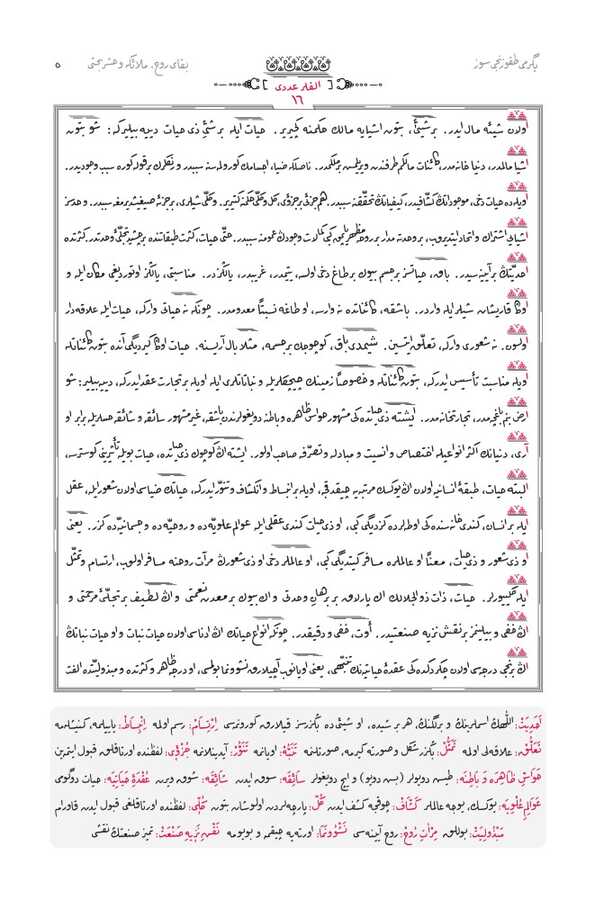 يگرمی طقوزنجی سوز
بقای روح، ملائكه و حشر بحثی
٥
[ الفلر عددی ]
١٦
اولان شیئه مال ایدر. بر شیئی، بتون اشیایه مالك حكمنه كچیریر. حیات ایله بر شیءِ ذی حیات دییه بیلیركه: شو بتون
اشیا مالمدر، دنیا خانه‌مدر، كائنات مالكم طرفندن ویریلمش بر ملكمدر. ناصلكه ضیا، اجسامك كورولمه‌سنه سببدر و رنكلرك بر قوله كوره سبب وجودیدر.
اویله‌ده حیات دخی، موجوداتك كشّافیدر، كیفیاتك تحقّقنه سببدر. هم جزئی بر جزؤی، كل و كلّی حكمنه كتیریر. و كلّی شیلری، بر جزئه صیغیشدیرمغه سببدر. و حدسز
اشیای اشتراك و اتحاد ایتدیروب، بر وحدته مدار، بر روحه مظهر یاپمق كبی كمالات وجودك عمومنه سببدر. حتی حیات كثرت طبقاتنده بر چشید تجلّئ وحدتدر، كثرتده
احدیّتك بر آیینه‌سیدر. باق، حیاتسز بر جسم بیوك بر طاغ دخی اولسه، یتیمدر، غریبدر، یالكزدر. مناسبتی، یالكز اوتوردیغی مكان ایله و
اوكا قاریشان شیلر ایله واردر. باشقه، كائناتده نه وارسه، او طاغه نسبتًا معدومدر. چونكه نه حیاتی واركه، حیات ایله علاقه‌دار
اولسون. نه شعوری واركه، تعلّق ایتسین. شیمدی باق، كوچوجك بر جسمه، مثلا بال آریسنه. حیات اوكا كیردیگی آنده بتون كائناتله
اویله مناسبت تأسیس ایدركه، بتون كائناتله و خصوصًا زمینك چیچكلریله و نباتاتلری ایله اویله بر تجارت عقد ایدركه، دییه‌بیلیر: شو
ارض بنم باغچه‌مدر، تجارتخانه‌مدر. ایشته ذی حیاتده‌كی مشهور حواس ظاهره و باطنه دویغولرندن باشقه، غیر مشهور سائقه و شائقه حسلریله برابر او
آری، دنیانك اكثر انواعیله اختصاص و انسیت و مبادله و تصرّفه صاحب اولور. ایشته اڭ كوچوك ذی حیاتده، حیات بویله تأثیرینی كوسترسه،
البته حیات، طبقۀ انسانیه اولان اڭ یوكسك مرتبه‌یه چیقدقجه، اویله بر انبساط و انكشاف و تنوّر ایدركه، حیاتك ضیاسی اولان شعور ایله، عقل
ایله بر انسان، كندی خانه‌سنده‌كی اوطه‌لرده كزدیگی كبی، او ذی حیات كندی عقلی ایله عوالم علویه‌ده و روحیه‌ده و جسمانیه‌ده كزر. یعنی
او ذی شعور و ذی حیات، معنًا او عالملره مسافر كیتدیگی كبی، او عالملر دخی او ذی شعورك مرآت روحنه مسافر اولوب، ارتسام و تمثّل
ایله كلییورلر. حیات، ذات ذوالجلالك اڭ پارلاق بر برهان وحدتی و اڭ بیوك بر معدن نعمتی و اڭ لطیف بر تجلّئ مرحمتی و
اڭ خفی و بیلینمز بر نقش نزیه صنعتیدر. أوت، خفی و دقیقدر. چونكه انواع حیاتك اڭ ادناسی اولان حیات نبات و او حیات نباتك
اڭ برنجی درجه‌سی اولان چكردكده‌كی عقدۀ حیاتیه‌نك تنبّهی، یعنی اویانوب آچیلارق نشو و نما بولمسی، او درجه ظاهر و كثرتده و مبذولیتده الفت
اَحَدِیَّتْ: اللهك اسملرینك و برلگنك، هر بر شیده، او شیئی‌ده بكزرسز قیلارق كورونمسی اِرْتِسَامْ: رسم اولمه اِنْبِسَاطْ: یاییلمه، كنیشلمه
تَعَلُّقْ: علاقه‌لی اولمه تَمَثُّلْ: بكزر شكل و صورته كیرمه، صورتلنمه تَنَبُّهْ: اویانمه تَنَوُّرْ: آیدینلانمه جُزْؤِی: لفظنده اورتاقلغی قبول ایتمین
حَوَاسِّ ظَاهِرَه وَ بَاطِنَه: طیش دویولر (بش دویو) و ایچ دویغولر سَائِقَه: سوق ایدن شَائِقَه: شوق ویرن عُقْدَۀ حَیَاتِیَه: حیات دوگومی
عَوَالِمِ عُلْوِیَه: یوكسك، یوجه عالملر كَشَّافْ: چوقجه كشف ایدن كُلّ: پارچه‌لردن اولوشان بتون كُلِّی: لفظنده اورتاقلغی قبول ایدن قاوراملر
مَبْذُولِیَتْ: بوللق مِرْأٰتِ رُوحْ: روح آیینه‌سی نَشْوُ و نَمَا: اورته‌یه چیقمه و بویومه نَقْشِ نَزِیهِ صَنْعَتْ: تمیز صنعتك نقشی